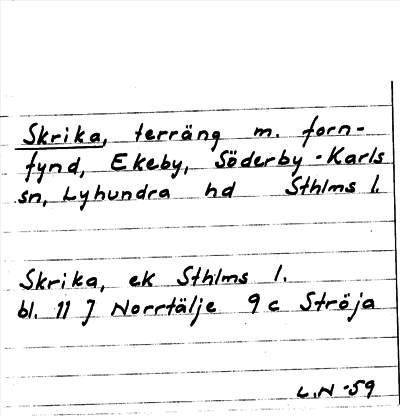 Skrika, terräng m. forn-
fynd, Ekeby, Söderby-Karls
sn, Lyhundra hd Sthlms l.
Skrika, ek Sthlms l.
bl. 11 J Norrtälje 9 c Ströja
L.N -59